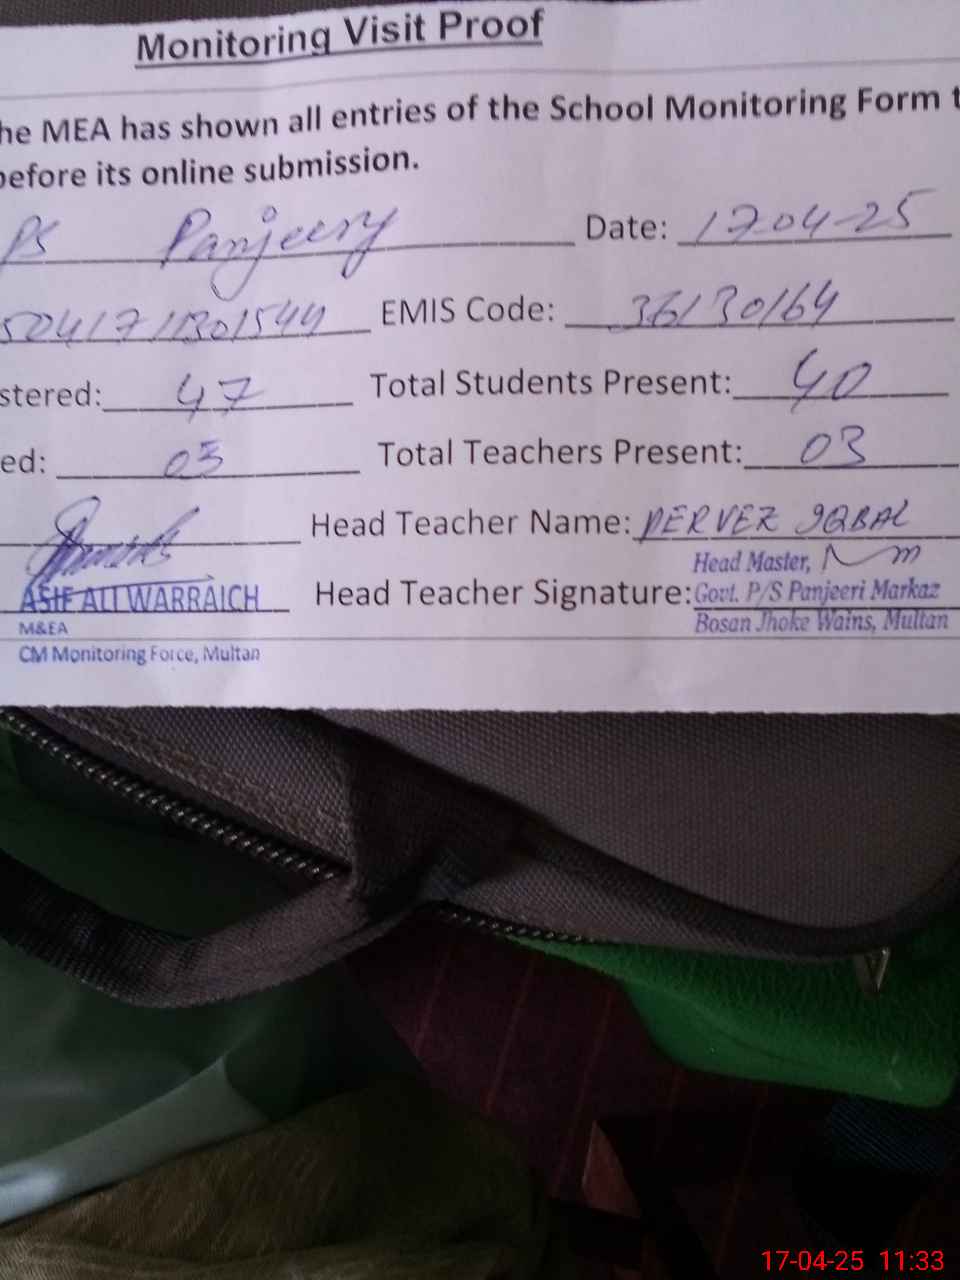 Monitoring Visit Proof
he MEA has shown all entries of the School Monitoring Form t
before its online submission.
PS Panjeery Date: 17-04-25
50417/1301544 EMIS Code: 36130164
stered: 47 Total Students Present: 40
ed: 03 Total Teachers Present: 03
Head Teacher Name: PERVEZ IQBAL
Head Master,
ASIF ALI WARRAICH Head Teacher Signature: Govt. P/S Panjeeri Markaz
M&EA Bosan Jhoke Wains, Multan
CM Monitoring Force, Multan
17-04-25 11:33